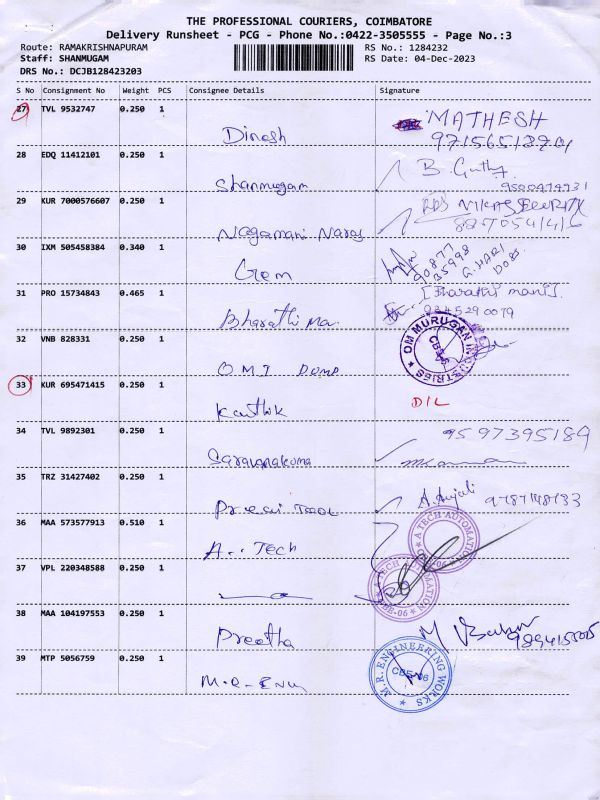 THE PROFESSIONAL COURIERS, COIMBATORE
Delivery Runsheet - PCG - Phone No.:0422-3505555 - Page No.:3
Route: RAMAKRISHNAPURAM RS No.: 1284232
Staff: SHANMUGAM RS Date: 04-Dec-2023
DRS No.: DCJB128423203
S No Consignment No Weight PCS Consignee Details Signature
27 TVL 9532747 0.250 1
Dinesh MATHESH
28 EDQ 11412101 0.250 1
Shanmugam
29 KUR 7000576607 0.250 1
Nagamani
30 IXM 505458384 0.340 1
Gem G.HARI
31 PRO 15734843 0.465 1
Bharathi Ma [Bharathi mani].
9345290079
32 VNB 828331 0.250 1
O.M.I OM MURUGAN INDUSTRIES
33 KUR 695471415 0.250 1
Karthik D/L
34 TVL 9892301 0.250 1
9597395189
Saravanakuma
35 TRZ 31427402 0.250 1
A. Anjali
36 MAA 573577913 0.510 1
A.. TECH A TECH AUTOMATION
37 VPL 220348588 0.250 1
A TECH AUTOMATION
38 MAA 104197553 0.250 1
Preetha
39 MTP 5056759 0.250 1
M.R-ENU M.R. ENGINEERING WORKS